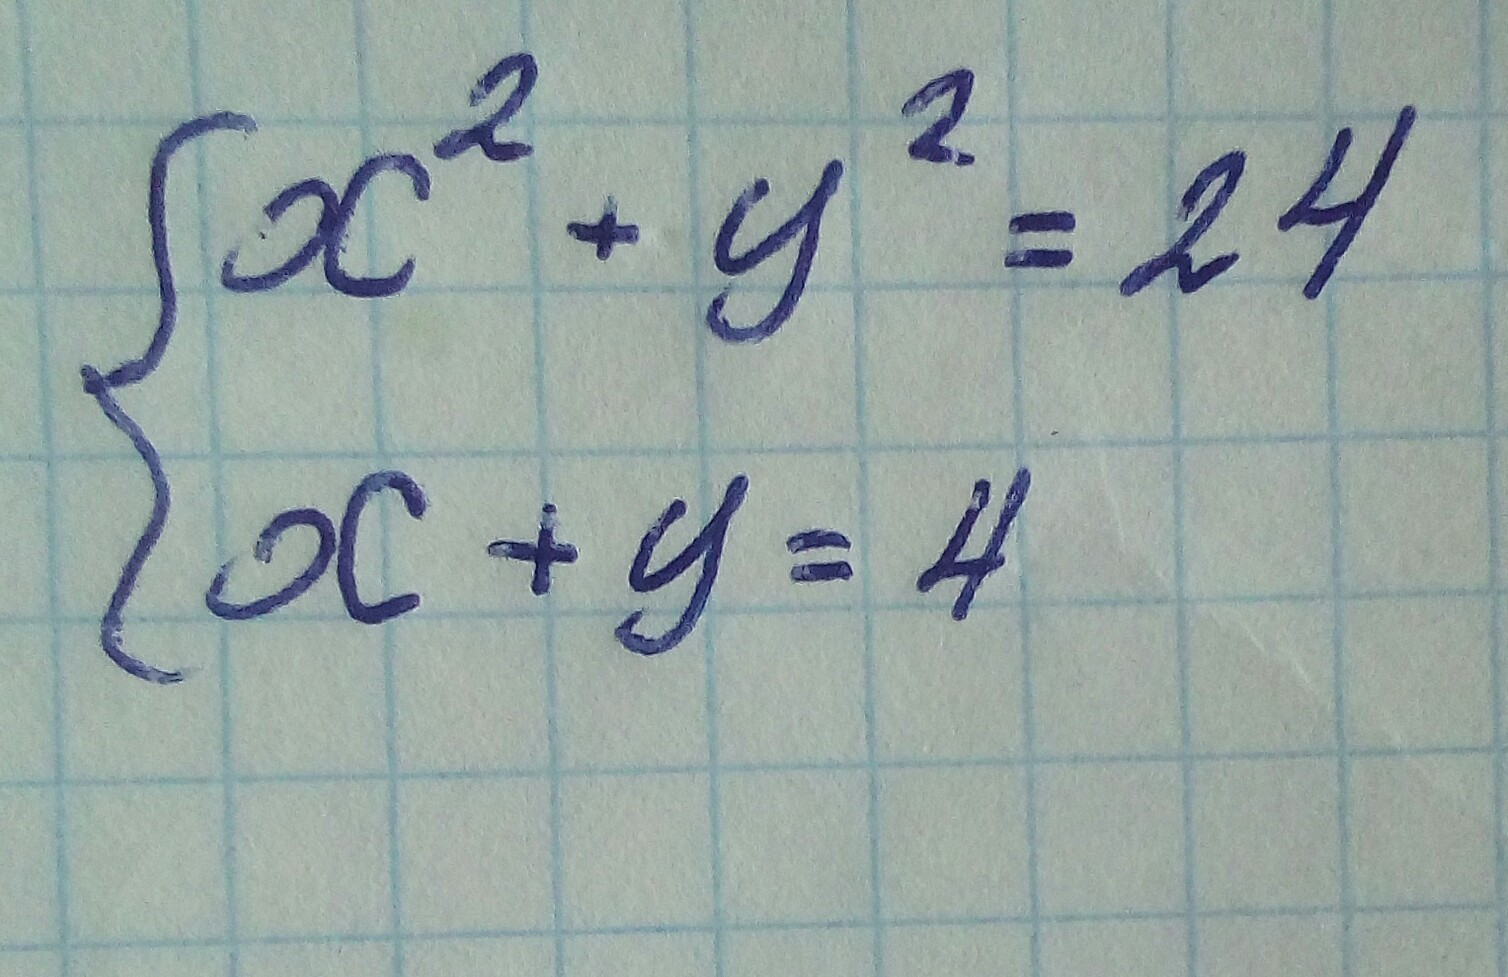 x² + y² = 24
x + y = 4